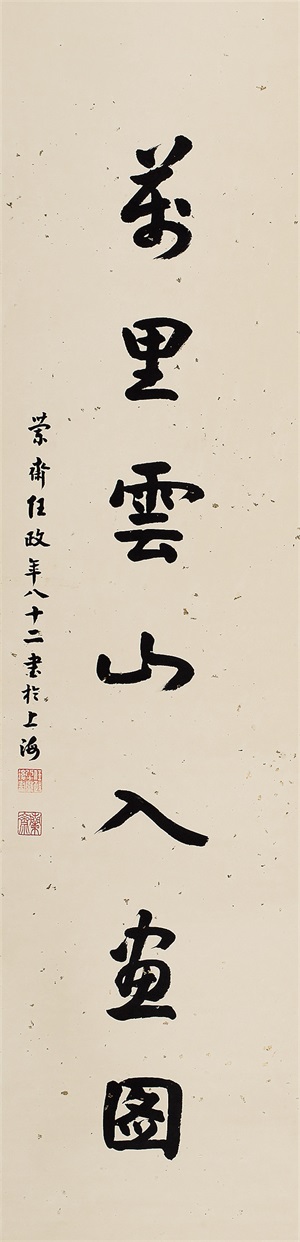 萬里雲山入畫圖
蘭齋任政年八十二書於上海